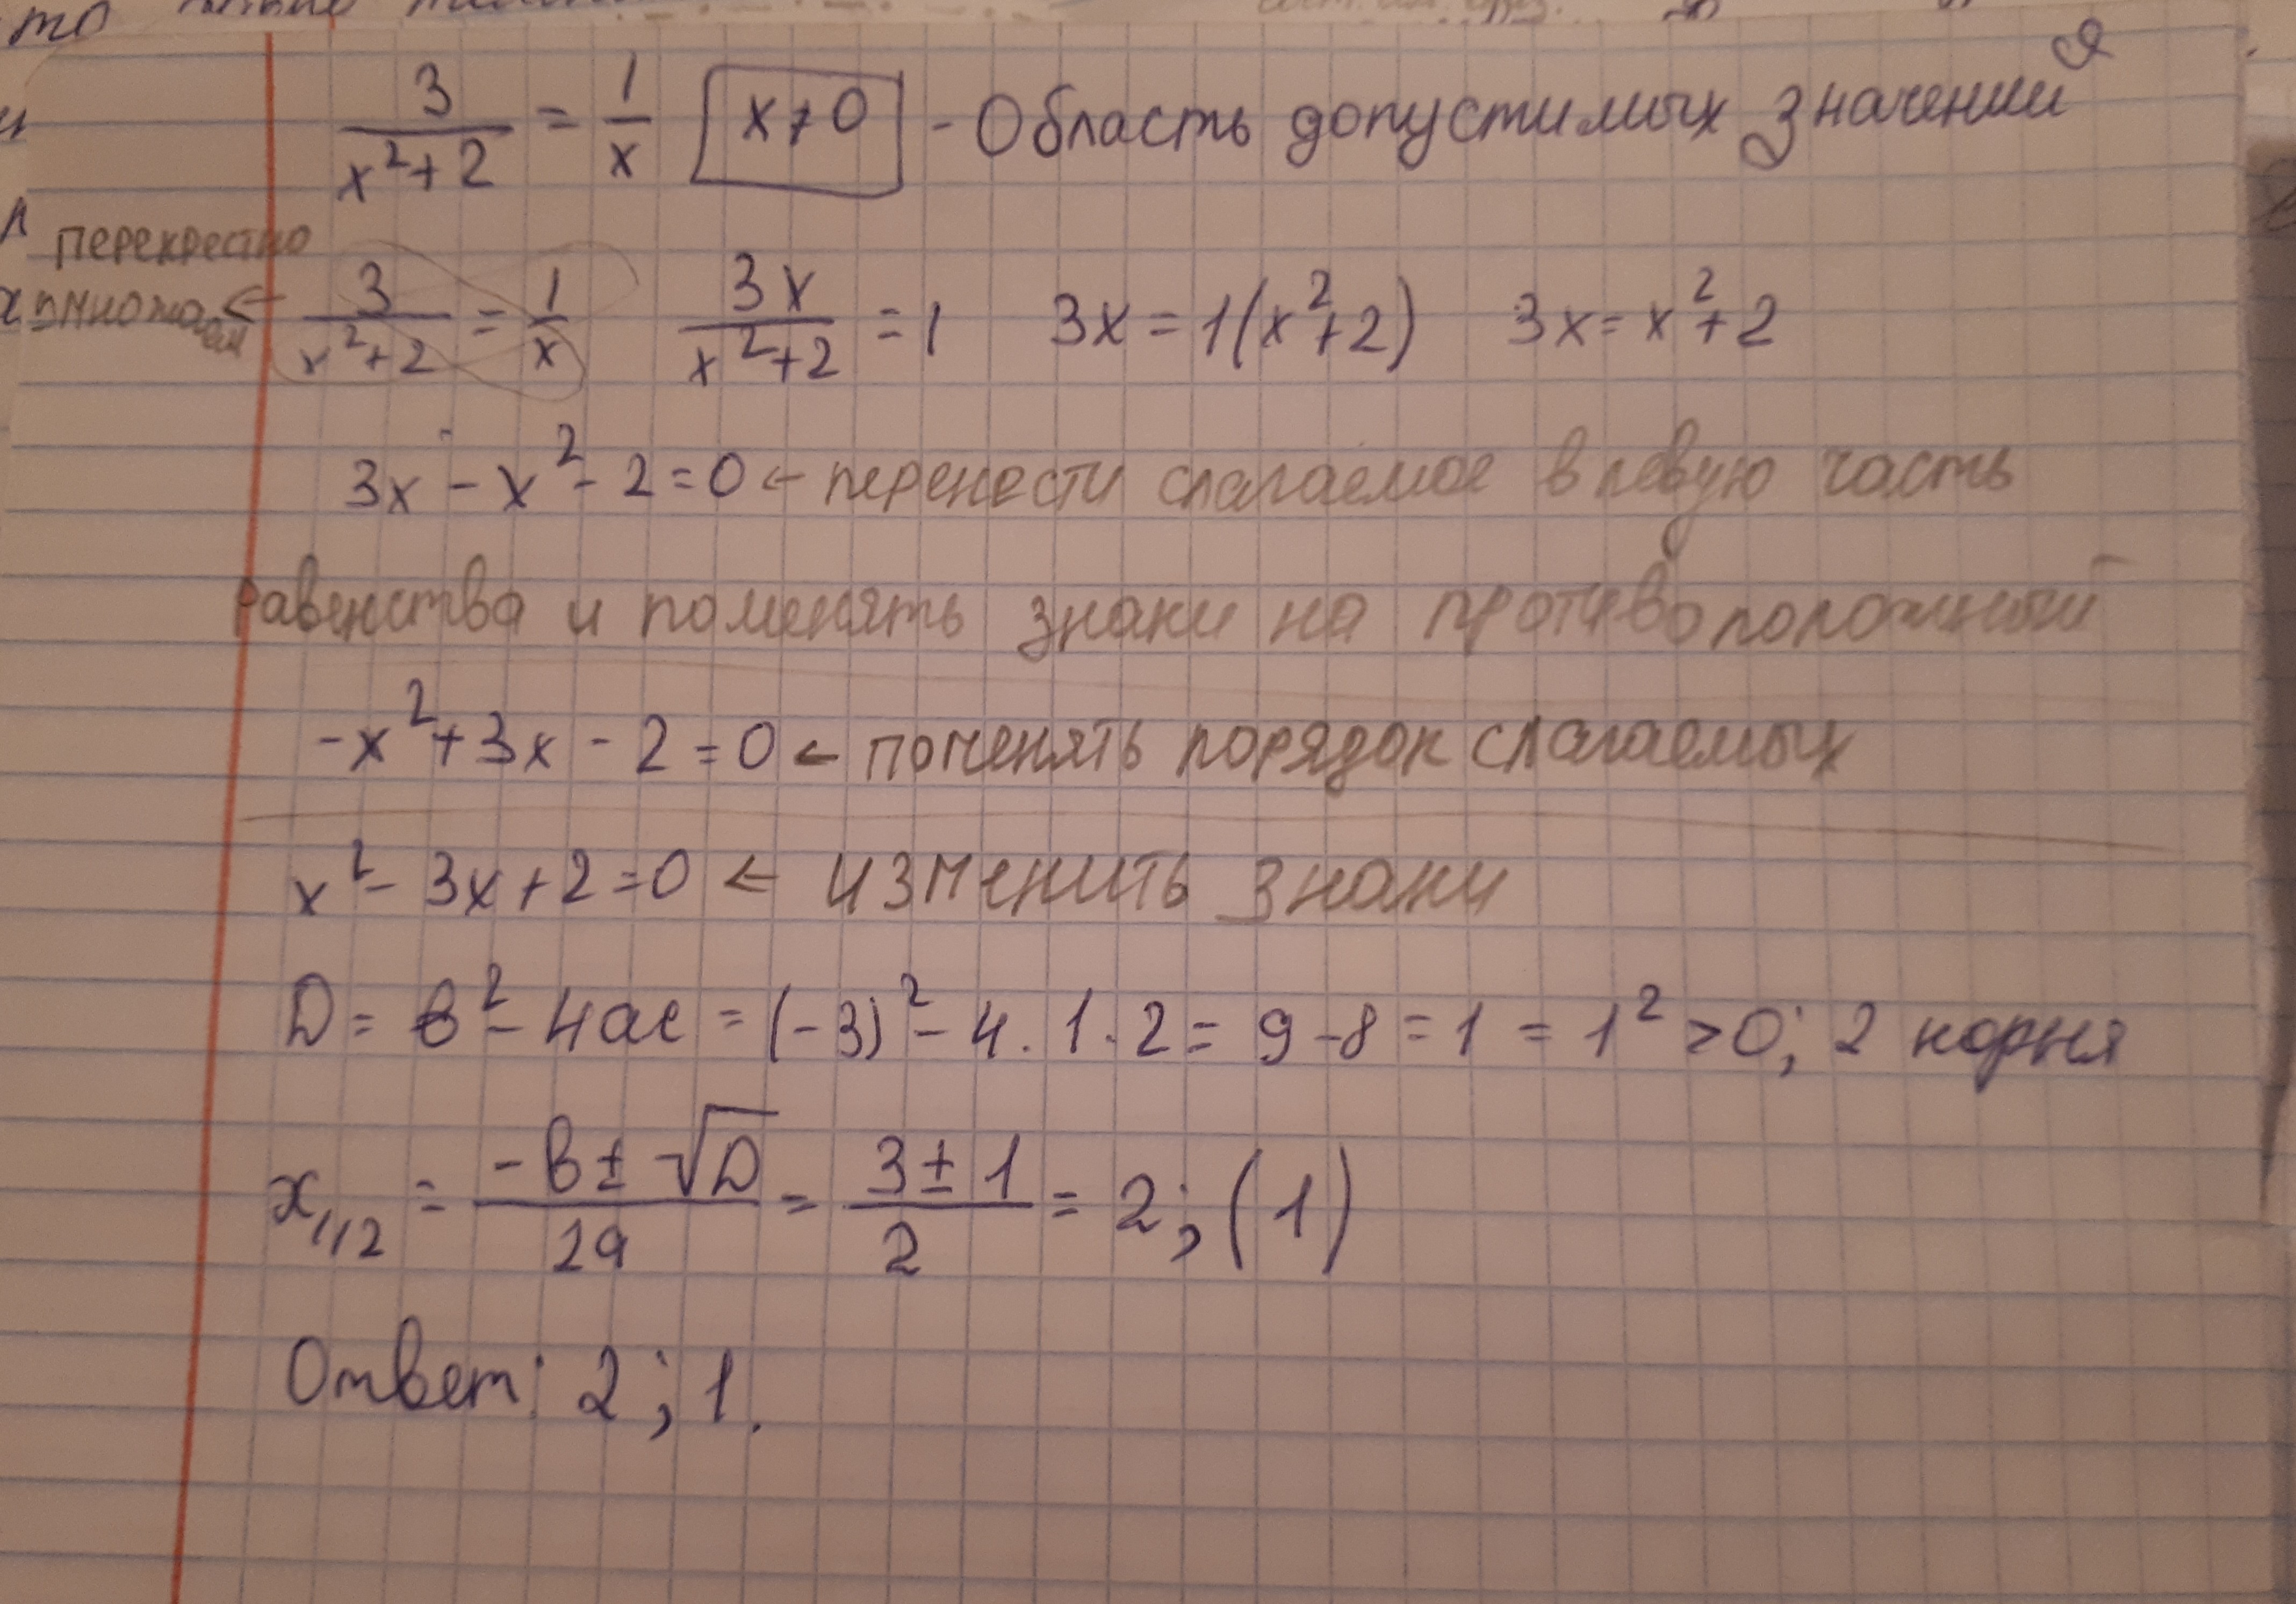 3/(x²+2) = 1/x x≠0 - Область допустимых значений
перекрестно
умножаем ← 3/(x²+2) = 1/x 3x/(x²+2) = 1 3x = 1(x²+2) 3x = x²+2
3x - x² - 2 = 0 ← перенести слагаемое в левую часть
равенства и поменять знаки на противоположный
-x² + 3x - 2 = 0 ← поменять порядок слагаемых
x² - 3x + 2 = 0 ← изменить знаки
D = в² - 4ac = (-3)² - 4·1·2 = 9 - 8 = 1 = 1² > 0; 2 корня
x₁,₂ = (-в ± √D)/2a = (3 ± 1)/2 = 2; (1)
Ответ: 2; 1.